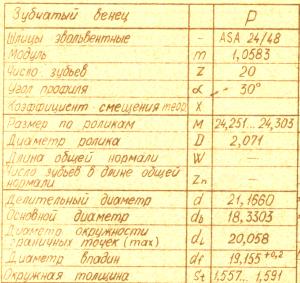 Зубчатый венец Р
Шлицы эвольвентные - ASA 24/48
Модуль m 1,0583
Число зубьев Z 20
Угол профиля α 30°
Коэффициент смещения теор. X
Размер по роликам M 24,251... 24,303
Диаметр ролика D 2,071
Длина общей нормали W —
Число зубьев в длине общей
нормали Zn —
Делительный диаметр d 21,1660
Основной диаметр db 18,3303
Диаметр окружности
граничных точек (max) dL 20,058
Диаметр впадин df 19,155 +0,2
Окружная толщина St 1,557... 1,591